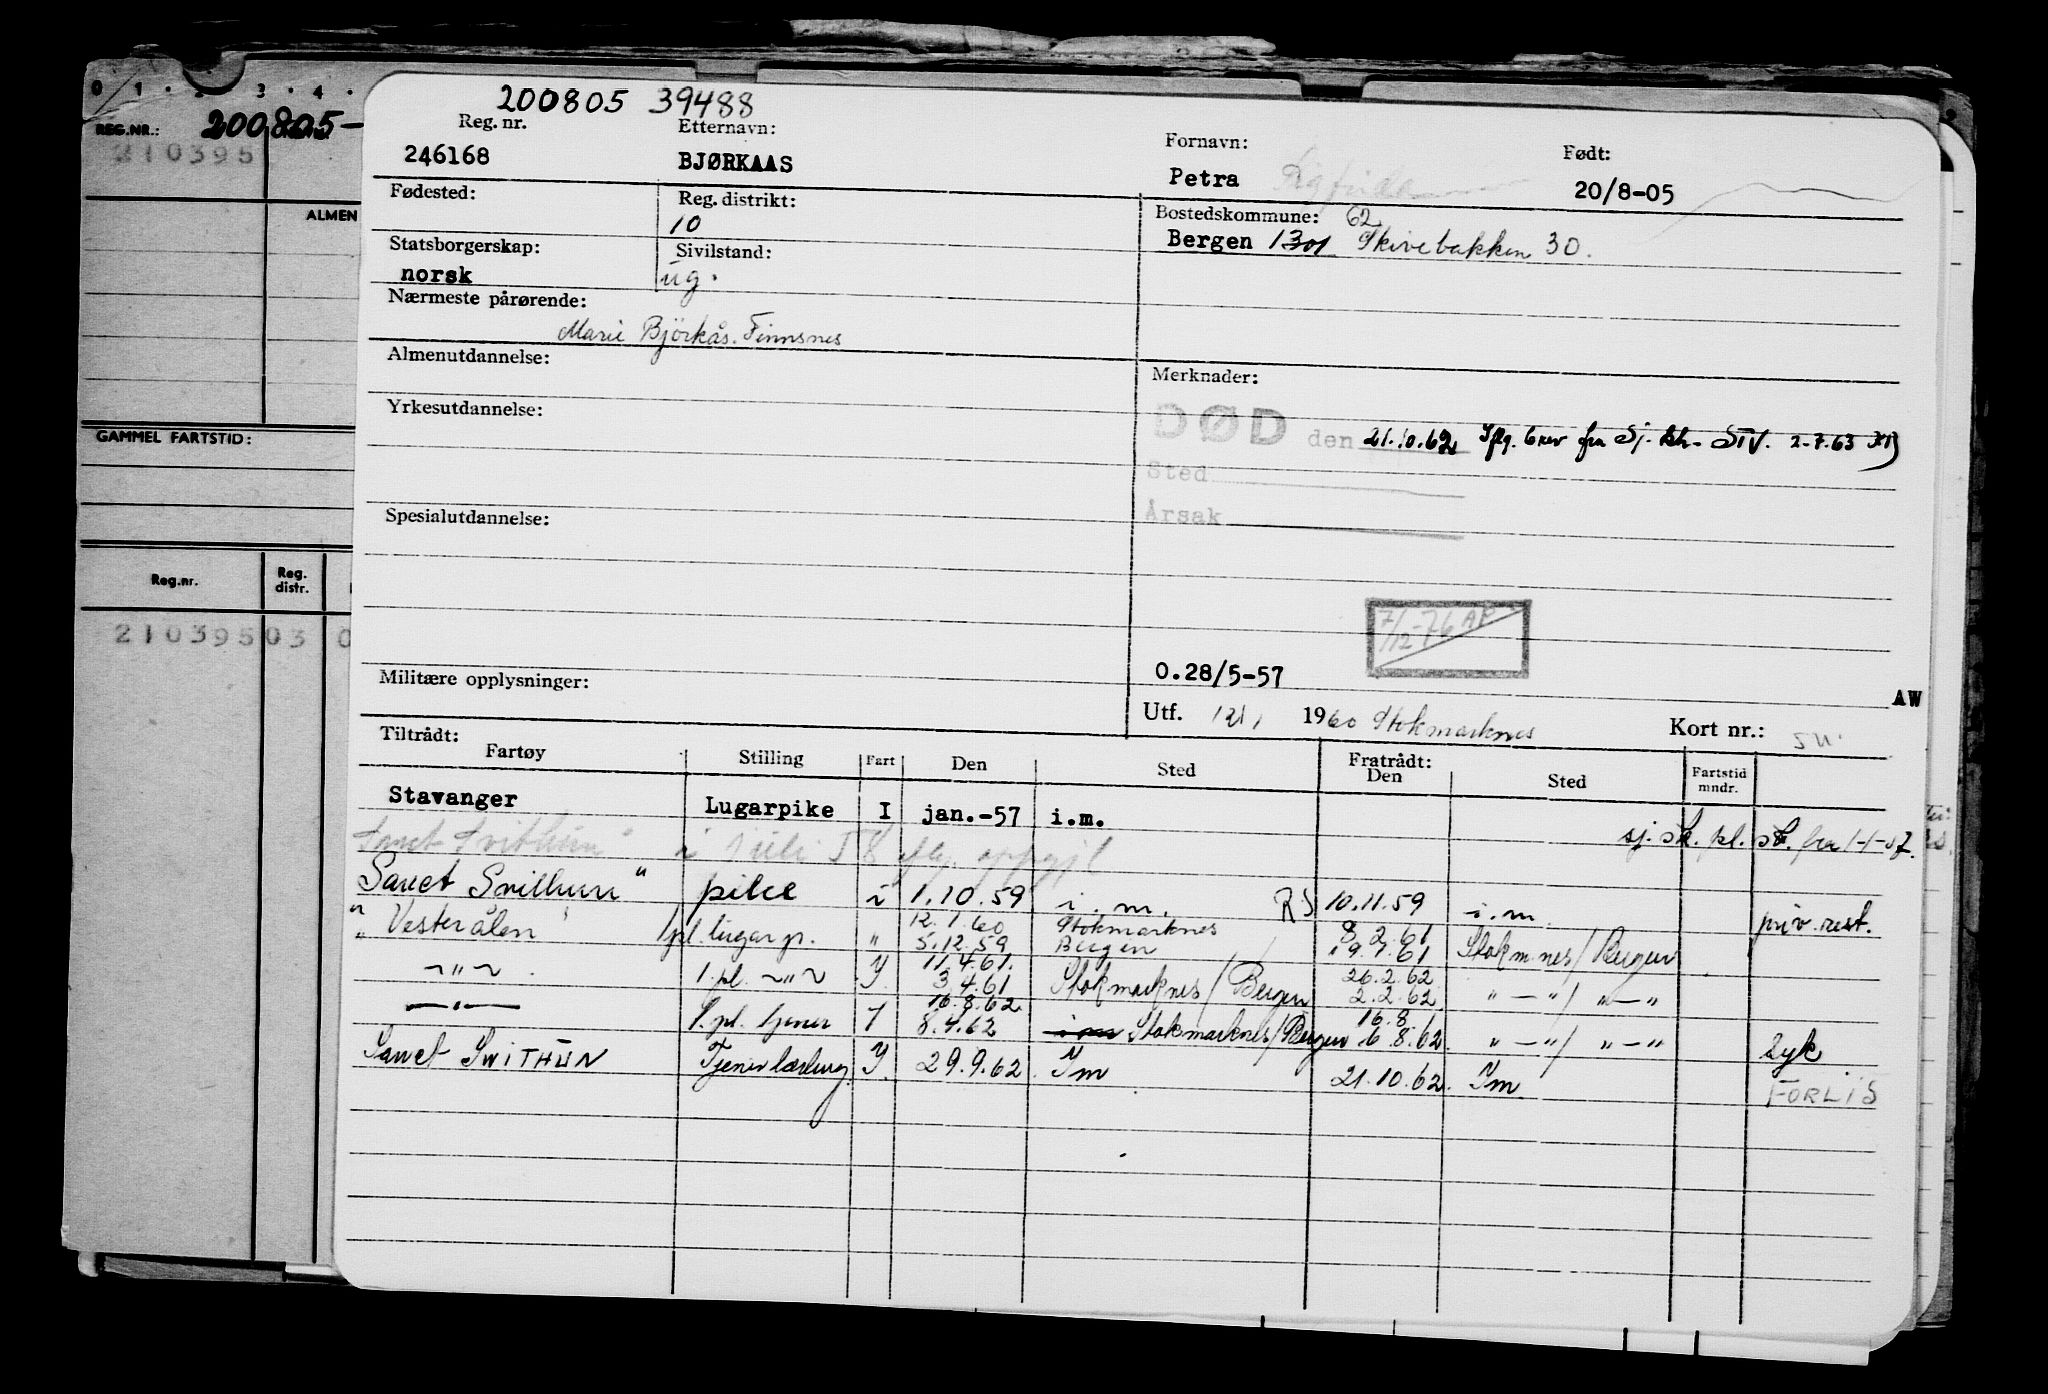 0 1 . 2 3 . 4 .
REG.NR.: 200805-
210395
ALMEN
GAMMEL FARTSTID:
Reg.nr. Reg. distr.
21039503 0
200805 39488
Reg. nr. Etternavn: Fornavn: Født:
246168 BJØRKAAS Petra 20/8-05
Fødested: Reg. distrikt: Bostedskommune: 62
10 Bergen 1301 Skivebakken 30.
Statsborgerskap: Sivilstand:
norsk ug.
Nærmeste pårørende:
Marie Björkås. Finnsnes
Almenutdannelse: Merknader:
Yrkesutdannelse:
DØD den 21.10.62 Iflg. brev fra Sj. STV. 2-7.63
Sted
Årsak
Spesialutdannelse:
7/12-76 AP
Militære opplysninger: O.28/5-57
AW
Utf. 12/1 1960 Stokmarknes Kort nr.:
Tiltrådt: Fratrådt:
Fartøy Stilling Fart Den Sted Den Sted Fartstid mndr.
Stavanger Lugarpike I jan.-57 i.m.
sj. sk. pl. sk. fra 1-1-57.
Sanct Svithun" i juli 58 iflg. oppgj
Sanct Svithun" pike i 1.10.59 i.m. RS 10.11.59 i.m. priv. rest.
12.1.60 Stokmarknes 8.2.61
" Vesterålen " lpl. lugarp. " 5.12.59 Bergen 19.1.61 Stokm.nes/Bergen
11.4.61. 26.2.62
~"~ . 1.pl. ~"~ Y. 3.4.61 Stokmarknes/Bergen 2.2.62 "—"/"—"
16.8.62 16.8
—"— 1.pl. tjener I 8.4.62 i m Stokmarknes/Bergen 16.8.62. "—"/"—" Syk
Sanct SWITHUN Tjener Y. 29.9.62 Im 21.10.62. Im FORLIS